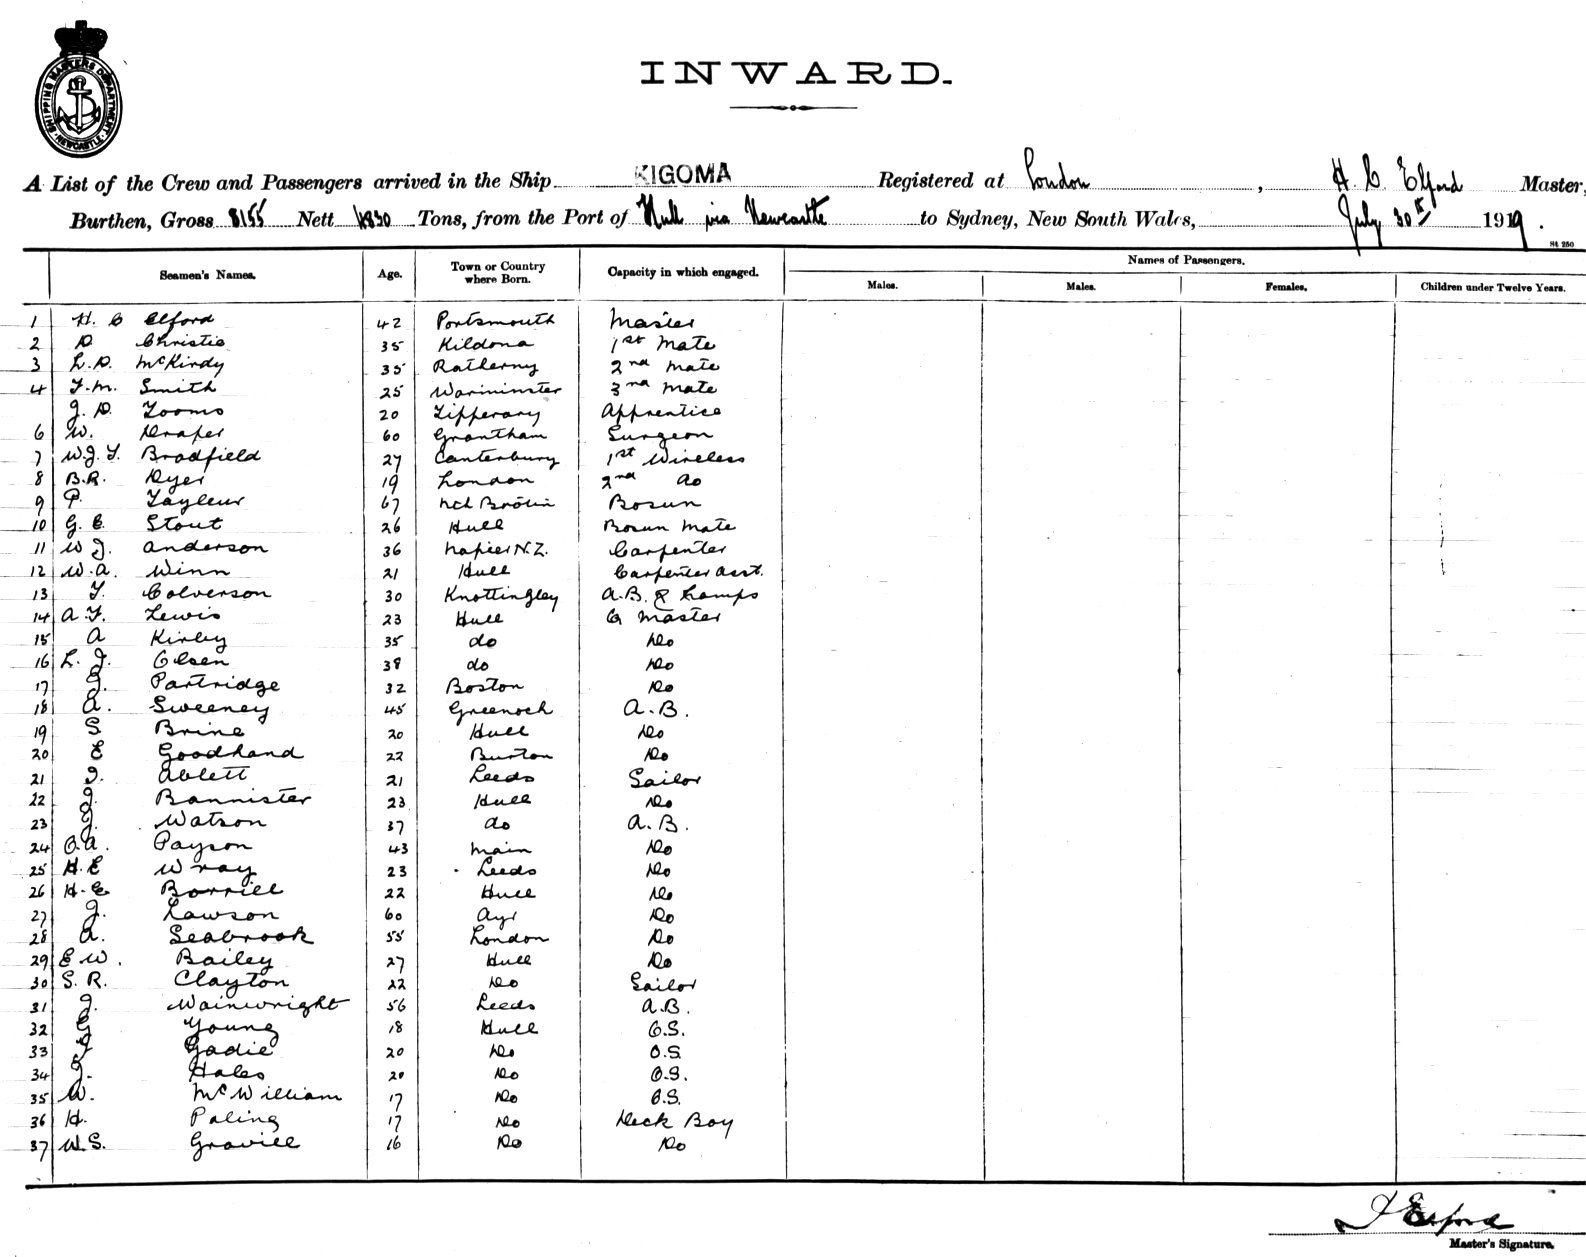 SHIPPING MASTERS DEPARTMENT NEWCASTLE
INWARD.
A List of the Crew and Passengers arrived in the Ship KIGOMA Registered at London, H. C. Elford Master,
Burthen, Gross 8155 Nett 4830 Tons, from the Port of Hull via Newcastle to Sydney, New South Wales, July 30th 1919.
St 250
Seamen's Names. Age. Town or Country where Born. Capacity in which engaged. Names of Passengers.
Males. Males. Females. Children under Twelve Years.
1 H. C Elford 42 Portsmouth Master
2 D Christie 35 Kildona 1st Mate
3 L. D. McKirdy 35 Ratherny 2nd Mate
4 F. M. Smith 25 Warminster 3rd Mate
J. D. Tooms 20 Tipperary Apprentice
6 W. Draper 60 Grantham Surgeon
7 W. J. F. Bradfield 27 Canterbury 1st Wireless
8 B. R. Dyer 19 London 2nd do
9 P. Tayleur 67 Bosun
10 G. E. Stout 26 Hull Bosun Mate
11 W J. Anderson 36 Napier N.Z. Carpenter
12 W. A. Winn 21 Hull Carpenter Asst.
13 F. Colverson 30 Knottingley A.B. & Lamps
14 A. F. Lewis 23 Hull Q Master
15 A Kirby 35 do Do
16 L. J. Olsen 38 do Do
17 J. Partridge 32 Boston Do
18 A. Sweeney 45 Greenock A.B.
19 S Brine 20 Hull Do
20 E Goodhand 22 Burton Do
21 J. Ablett 21 Leeds Sailor
22 J. Bannister 23 Hull Do
23 J. Watson 37 do A.B.
24 O. A. Payson 43 Main Do
25 H. E Wray 23 Leeds Do
26 H. E Borrill 22 Hull Do
27 J. Lawson 60 Ayr Do
28 A. Seabrook 55 London Do
29 E W. Bailey 27 Hull Do
30 S. R. Clayton 22 Do Sailor
31 J. Wainwright 56 Leeds A.B.
32 Young 18 Hull O.S.
33 Gadie 20 Do O.S
34 J. Hales 20 Do O.S.
35 W. McWilliam 17 Do O.S.
36 H. Paling 17 Do Deck Boy
37 W. S. Gravill 16 Do Do
Elford
Master's Signature.